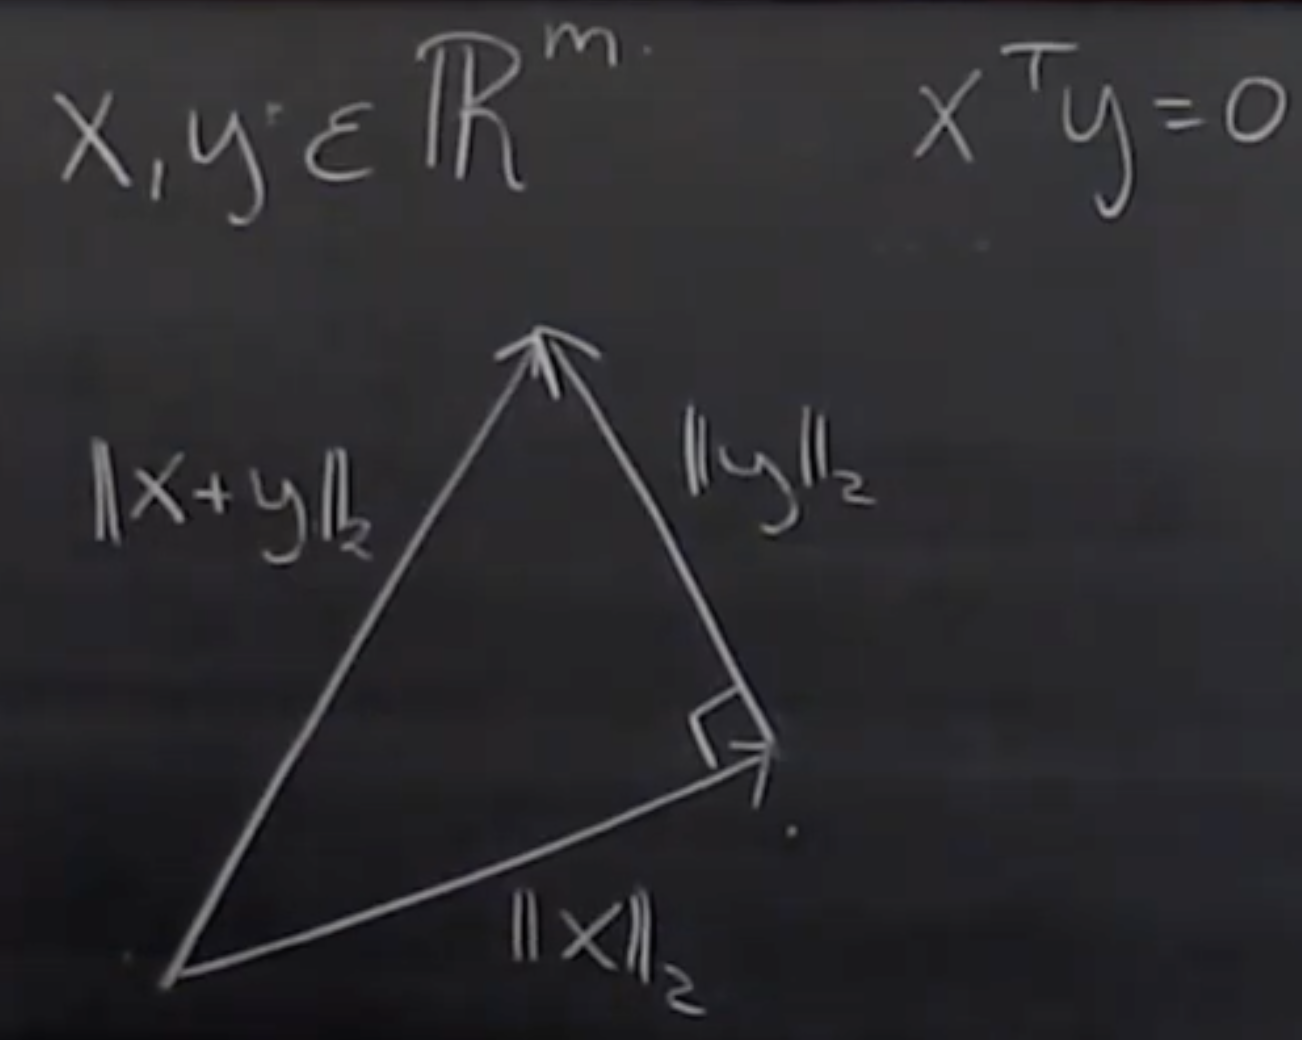 x, y ∈ ℝᵐ  xᵀy = 0
‖x+y‖₂  ‖y‖₂
‖x‖₂